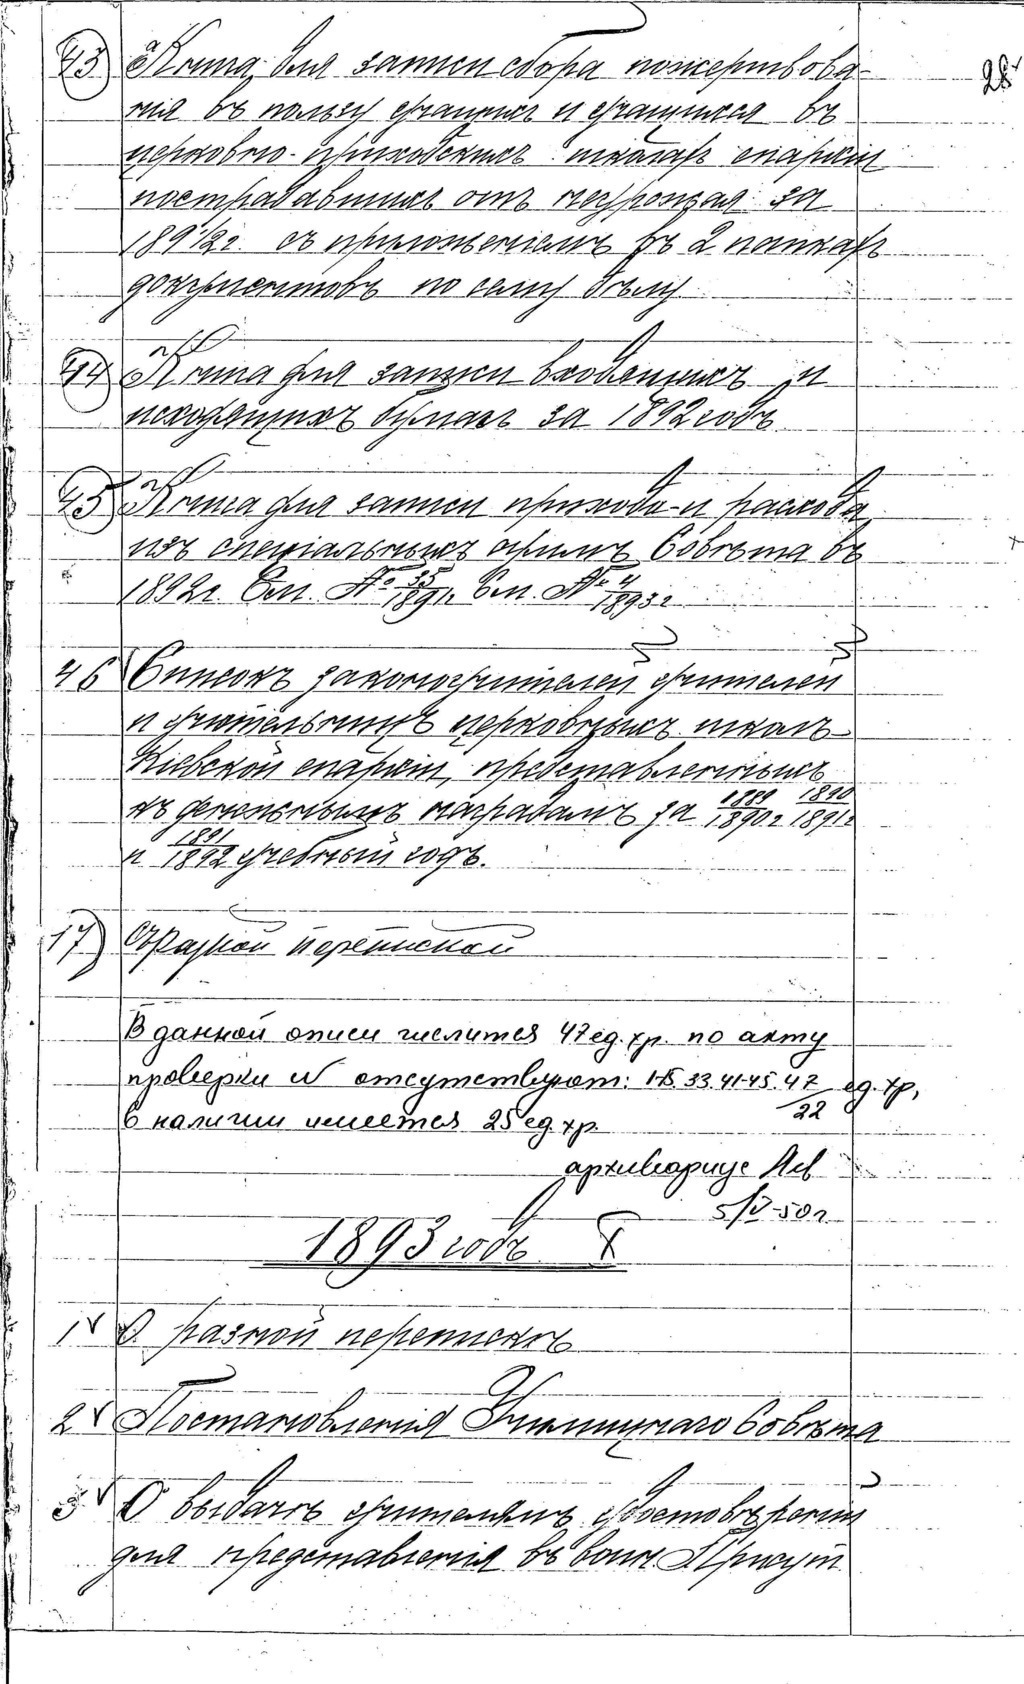 28
43 Книга для записи сбора пожертвова-
нія въ пользу учащихъ и учащихся въ
церковно-приходскихъ школахъ епархіи
пострадавшихъ отъ неурожая за
1891/2 г. съ приложеніемъ въ 2 папкахъ
документовъ по сему дѣлу
44 Книга для записи входящихъ и
исходящихъ бумагъ за 1892 годъ
45 Книга для записи прихода и расхода
изъ спеціальныхъ суммъ Совѣта въ
1892 г. См. № 35/1891 г. См. № 4/1893 г
46 Списокъ законоучителей учителей
и учительницъ церковныхъ школъ
Кіевской епархіи, представленныхъ
къ денежнымъ наградамъ за 1889/1890 г 1890/1891 г
и 1891/1892 учебный годъ.
47) Съ разной перепиской
В данной описи числится 47 ед. хр. по акту
проверки № отсутствуют: 1-15. 33. 41-45. 47 ед. хр,
22
в наличии имеется 25 ед. хр.
архивариус
5/V-50 г.
1893 годъ
1 О разной перепискѣ
2 Постановленія Училищнаго Совѣта
3 О выдачѣ учителямъ удостовѣреній
для представленія въ воин. Присут.